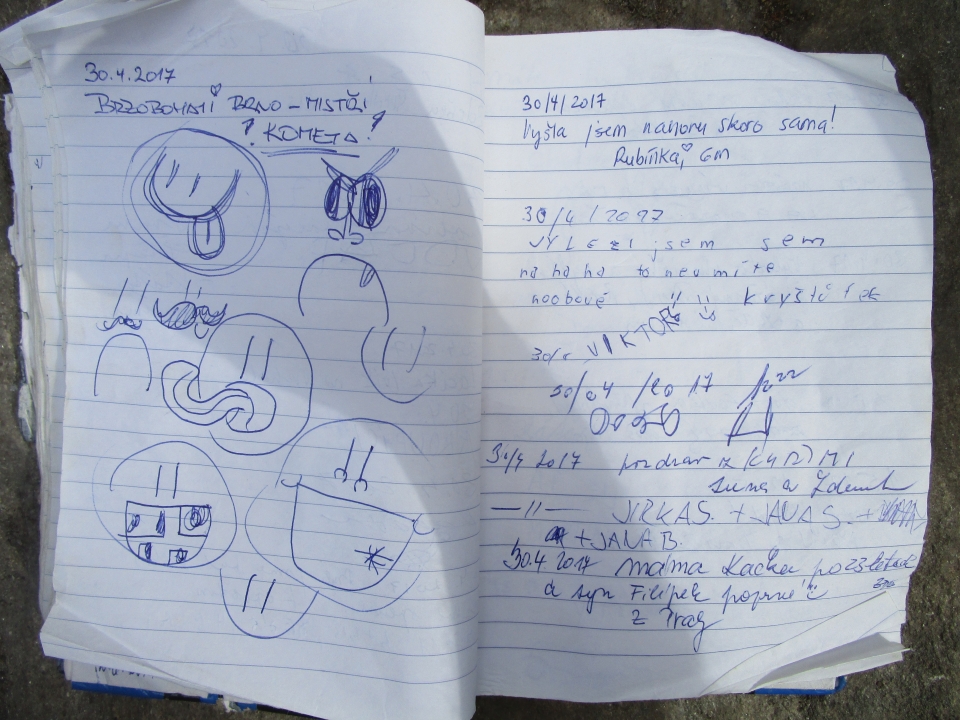 30.4.2017
BRZOBOHATÍ BRNO - MISTŘI
! KOMETA !
30/4/2017
Vyšla jsem nahoru skoro sama!
Rubínka, 6m
30/4/2027
VYLEZl jsem sem
na ha ha to neumíte
noobové kryštůfek
VIKTOR
30/04/2017
30/4 2017 pozdrav z
a Zdeněk
—11— JIRKA S. + JANA S. +
+ JANA B.
30.4 2017 máma Kačka po 23 letech
a syn Filípek poprvé
z Prahy